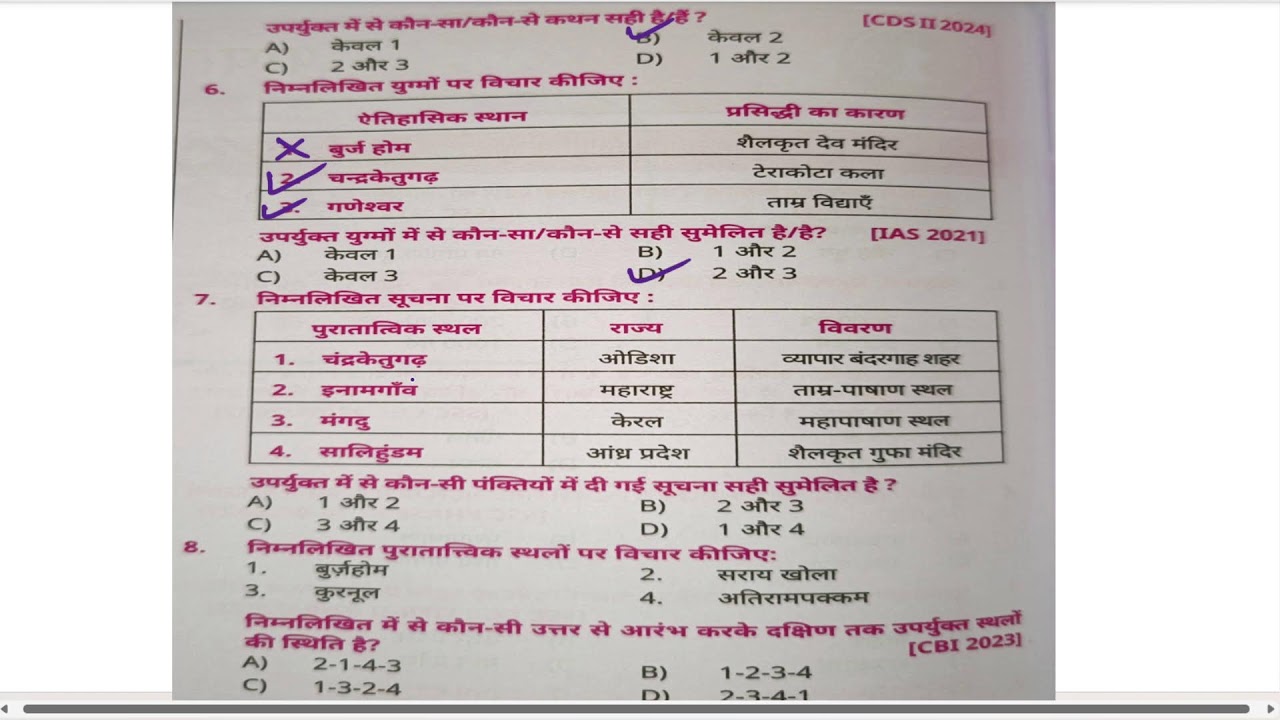 उपर्युक्त में से कौन-सा/कौन-से कथन सही है/हैं ? [CDS II 2024]
A) केवल 1 B) केवल 2
C) 2 और 3 D) 1 और 2
6. निम्नलिखित युग्मों पर विचार कीजिए :
ऐतिहासिक स्थान प्रसिद्धी का कारण
बुर्ज होम शैलकृत देव मंदिर
2. चन्द्रकेतुगढ़ टेराकोटा कला
3. गणेश्वर ताम्र विद्याएँ
उपर्युक्त युग्मों में से कौन-सा/कौन-से सही सुमेलित है/है? [IAS 2021]
A) केवल 1 B) 1 और 2
C) केवल 3 D) 2 और 3
7. निम्नलिखित सूचना पर विचार कीजिए :
पुरातात्विक स्थल राज्य विवरण
1. चंद्रकेतुगढ़ ओडिशा व्यापार बंदरगाह शहर
2. इनामगाँव महाराष्ट्र ताम्र-पाषाण स्थल
3. मंगदु केरल महापाषाण स्थल
4. सालिहुंडम आंध्र प्रदेश शैलकृत गुफा मंदिर
उपर्युक्त में से कौन-सी पंक्तियों में दी गई सूचना सही सुमेलित है ?
A) 1 और 2 B) 2 और 3
C) 3 और 4 D) 1 और 4
8. निम्नलिखित पुरातात्त्विक स्थलों पर विचार कीजिए:
1. बुर्ज़होम 2. सराय खोला
3. कुरनूल 4. अतिरामपक्कम
निम्नलिखित में से कौन-सी उत्तर से आरंभ करके दक्षिण तक उपर्युक्त स्थलों
की स्थिति है? [CBI 2023]
A) 2-1-4-3 B) 1-2-3-4
C) 1-3-2-4 D) 2-3-4-1